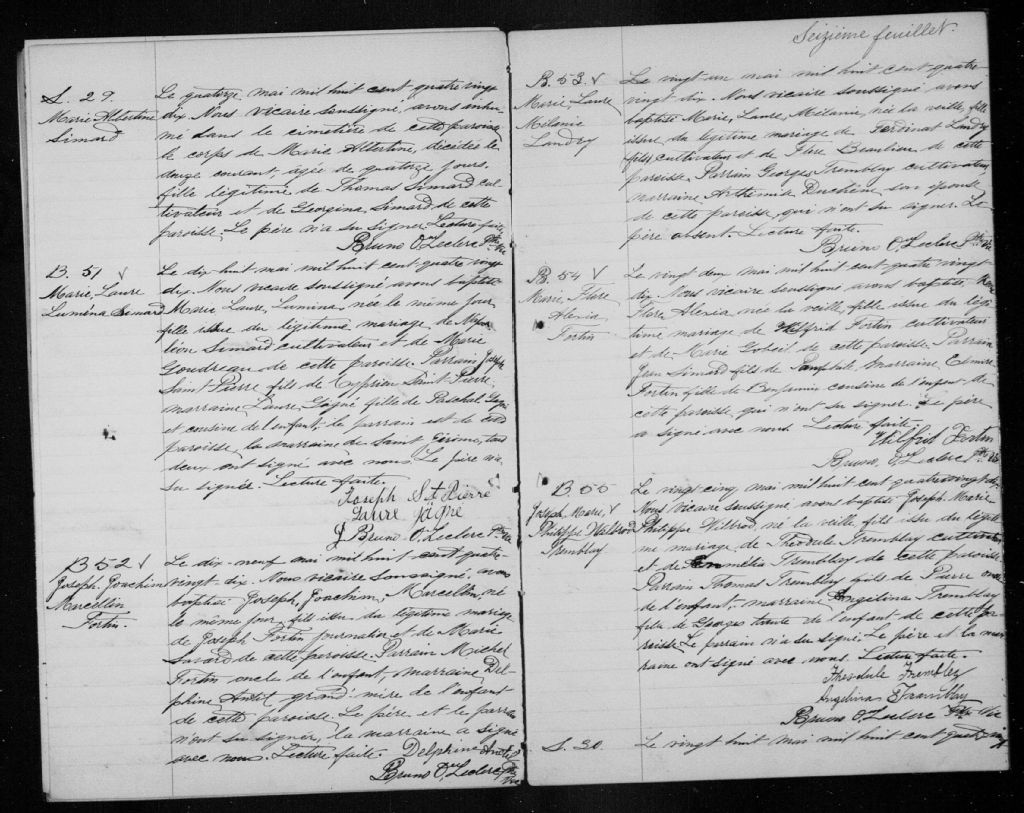 S. 29.
Marie Albertine
Simard
Le quatorze mai mil huit cent quatre vingt
dix Nous vicaire soussigné, avons inhu-
mé dans le cimetière de cette paroisse
le corps de Marie Albertine, décédée le
douze courant, agée de quatorze jours,
fille légitime de Thomas Simard cul-
tivateur et de Georgina Simard de cette
paroisse. Le père n'a su signer. Lecture faite.
Bruno O. Leclerc Ptre Vic
B. 51 v
Marie, Laure
Lumina Simard
Le dix huit mai mil huit cent quatre vingt
dix. Nous vicaire soussigné avons baptisé
Marie, Laure, Lumina, née le même jour
fille issue du légitime mariage de
Simard cultivateur et de Marie
Goudreau de cette paroisse. Parrain Joseph
Saint-Pierre fils de Cyprien Saint-Pierre,
marraine Laure Gagné fille de Paschal Gagné
et cousine de l'enfant, le parrain est de cette
paroisse, la marraine de Saint Jérôme, tous
deux ont signé avec nous. Le père n'a
su signer. Lecture faite.
Joseph St Pierre
Laure Gagné
J Bruno O. Leclerc Ptre Vic
B 52 v
Joseph, Joachim
Marcellin
Fortin.
Le dix-neuf mai mil huit cent quatre
vingt dix. Nous vicaire soussigné, avons
baptisé Joseph, Joachim, Marcellin, né
le même jour, fils issu du légitime mariage
de Joseph Fortin journalier et de Marie
Savard de cette paroisse. Parrain Michel
Fortin oncle de l'enfant, marraine Del-
phine grand'mère de l'enfant
de cette paroisse. Le père et le parrain
n'ont su signer, la marraine a signé
avec nous. Lecture faite. Delphine
Bruno O. Leclerc Ptre Vic
Seizième feuillet.
B. 53. v
Marie, Laure
Mélanie
Landry
Le vingt un mai mil huit cent quatre-
vingt dix. Nous vicaire soussigné avons
baptisé Marie, Laure, Mélanie, née la veille, fille
issue du légitime mariage de Ferdinat Landry
fils cultivateur et de Flore Beaulieu de cette
paroisse. Parrain Georges Tremblay cultivateur,
marraine Arthémia Duchêne son épouse
de cette paroisse, qui n'ont su signer. Le
père absent. Lecture faite.
Bruno O. Leclerc Ptre Vic
B. 54 v
Marie, Flore
Alexia
Fortin
Le vingt deux mai mil huit cent quatre vingt
dix Nous vicaire soussigné avons baptisé, Marie
Flore, Alexia, née la veille, fille issue du légi-
time mariage de Wilfrid Fortin cultivateur
et de Marie Gobeil de cette paroisse. Parrain
Jean Simard fils de Pamphile, marraine
Fortin fille de Benjamin cousine de l'enfant de
cette paroisse, qui n'ont su signer. Le père
a signé avec nous. Lecture faite.
Wilfrid Fortin
Bruno, O. Leclerc Ptre Vic
B. 55
Joseph, Marie, v
Philippe Wilbrod
Tremblay
Le vingt cinq mai mil huit cent quatre vingt dix
Nous Vicaire soussigné, avons baptisé Joseph, Marie
Philippe Wilbrod, né la veille, fils issu du légiti-
me mariage de Théodule Tremblay cultivateur
et de Tremblay de cette paroisse
Parrain Thomas Tremblay fils de Pierre oncle
de l'enfant, marraine Angélina Tremblay
fille de Georges tante de l'enfant de cette pa-
roisse. Le parrain n'a su signé, Le père et la mar-
raine ont signé avec nous. Lecture faite.
Theodule Tremblay
Angelina Tramblay
Bruno O. Leclerc Ptre Vic
S. 30.
Le vingt huit mai mil huit cent quatre vingt